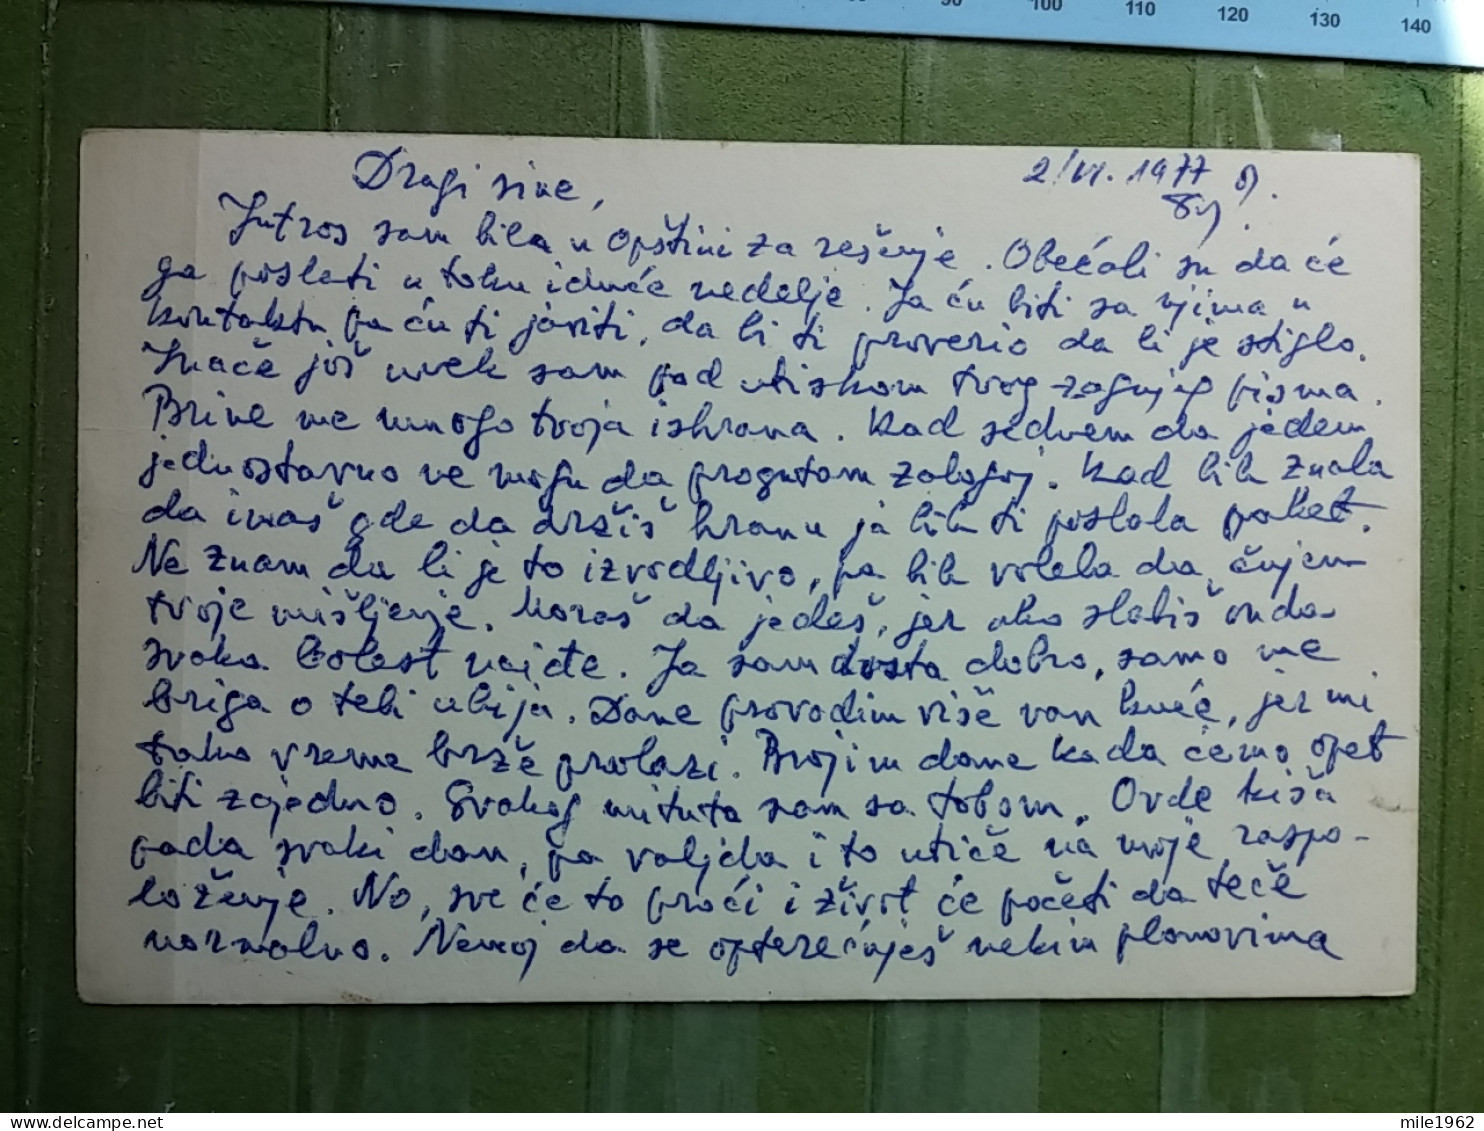 90 100 110 120 130 140
Dragi sine,
2/VI. 1977
Jutros sam bila u Opštini za rešenje. Obećali su da će
ga poslati u toku iduće nedelje. Ja ću biti sa njima u
kontaktu pa ću ti javiti, da bi ti proverio da li je stiglo.
Inače još uvek sam pod utiskom tvog zadnjeg pisma.
Brine me mnogo tvoja ishrana. Kad sednem da jedem
jednostavno ne mogu da progutam zalogaj. Kad bih znala
da imaš gde da držiš hranu ja bih ti poslala paket.
Ne znam da li je to izvodljivo, pa bih volela da čujem
tvoje mišljenje. Moraš da jedeš, jer ako slabiš onda
svaka bolest naiđe. Ja sam dosta dobro, samo me
briga o tebi ubija. Dane provodim više van kuće, jer mi
tako vreme brže prolazi. Brojim dane kada ćemo opet
biti zajedno. Svakog minuta sam sa tobom. Ovde kiša
pada svaki dan, pa valjda i to utiče na moje raspo-
loženje. No, sve će to proći i život će početi da teče
normalno. Nemoj da se opterećuješ nekim planovima
mile1962